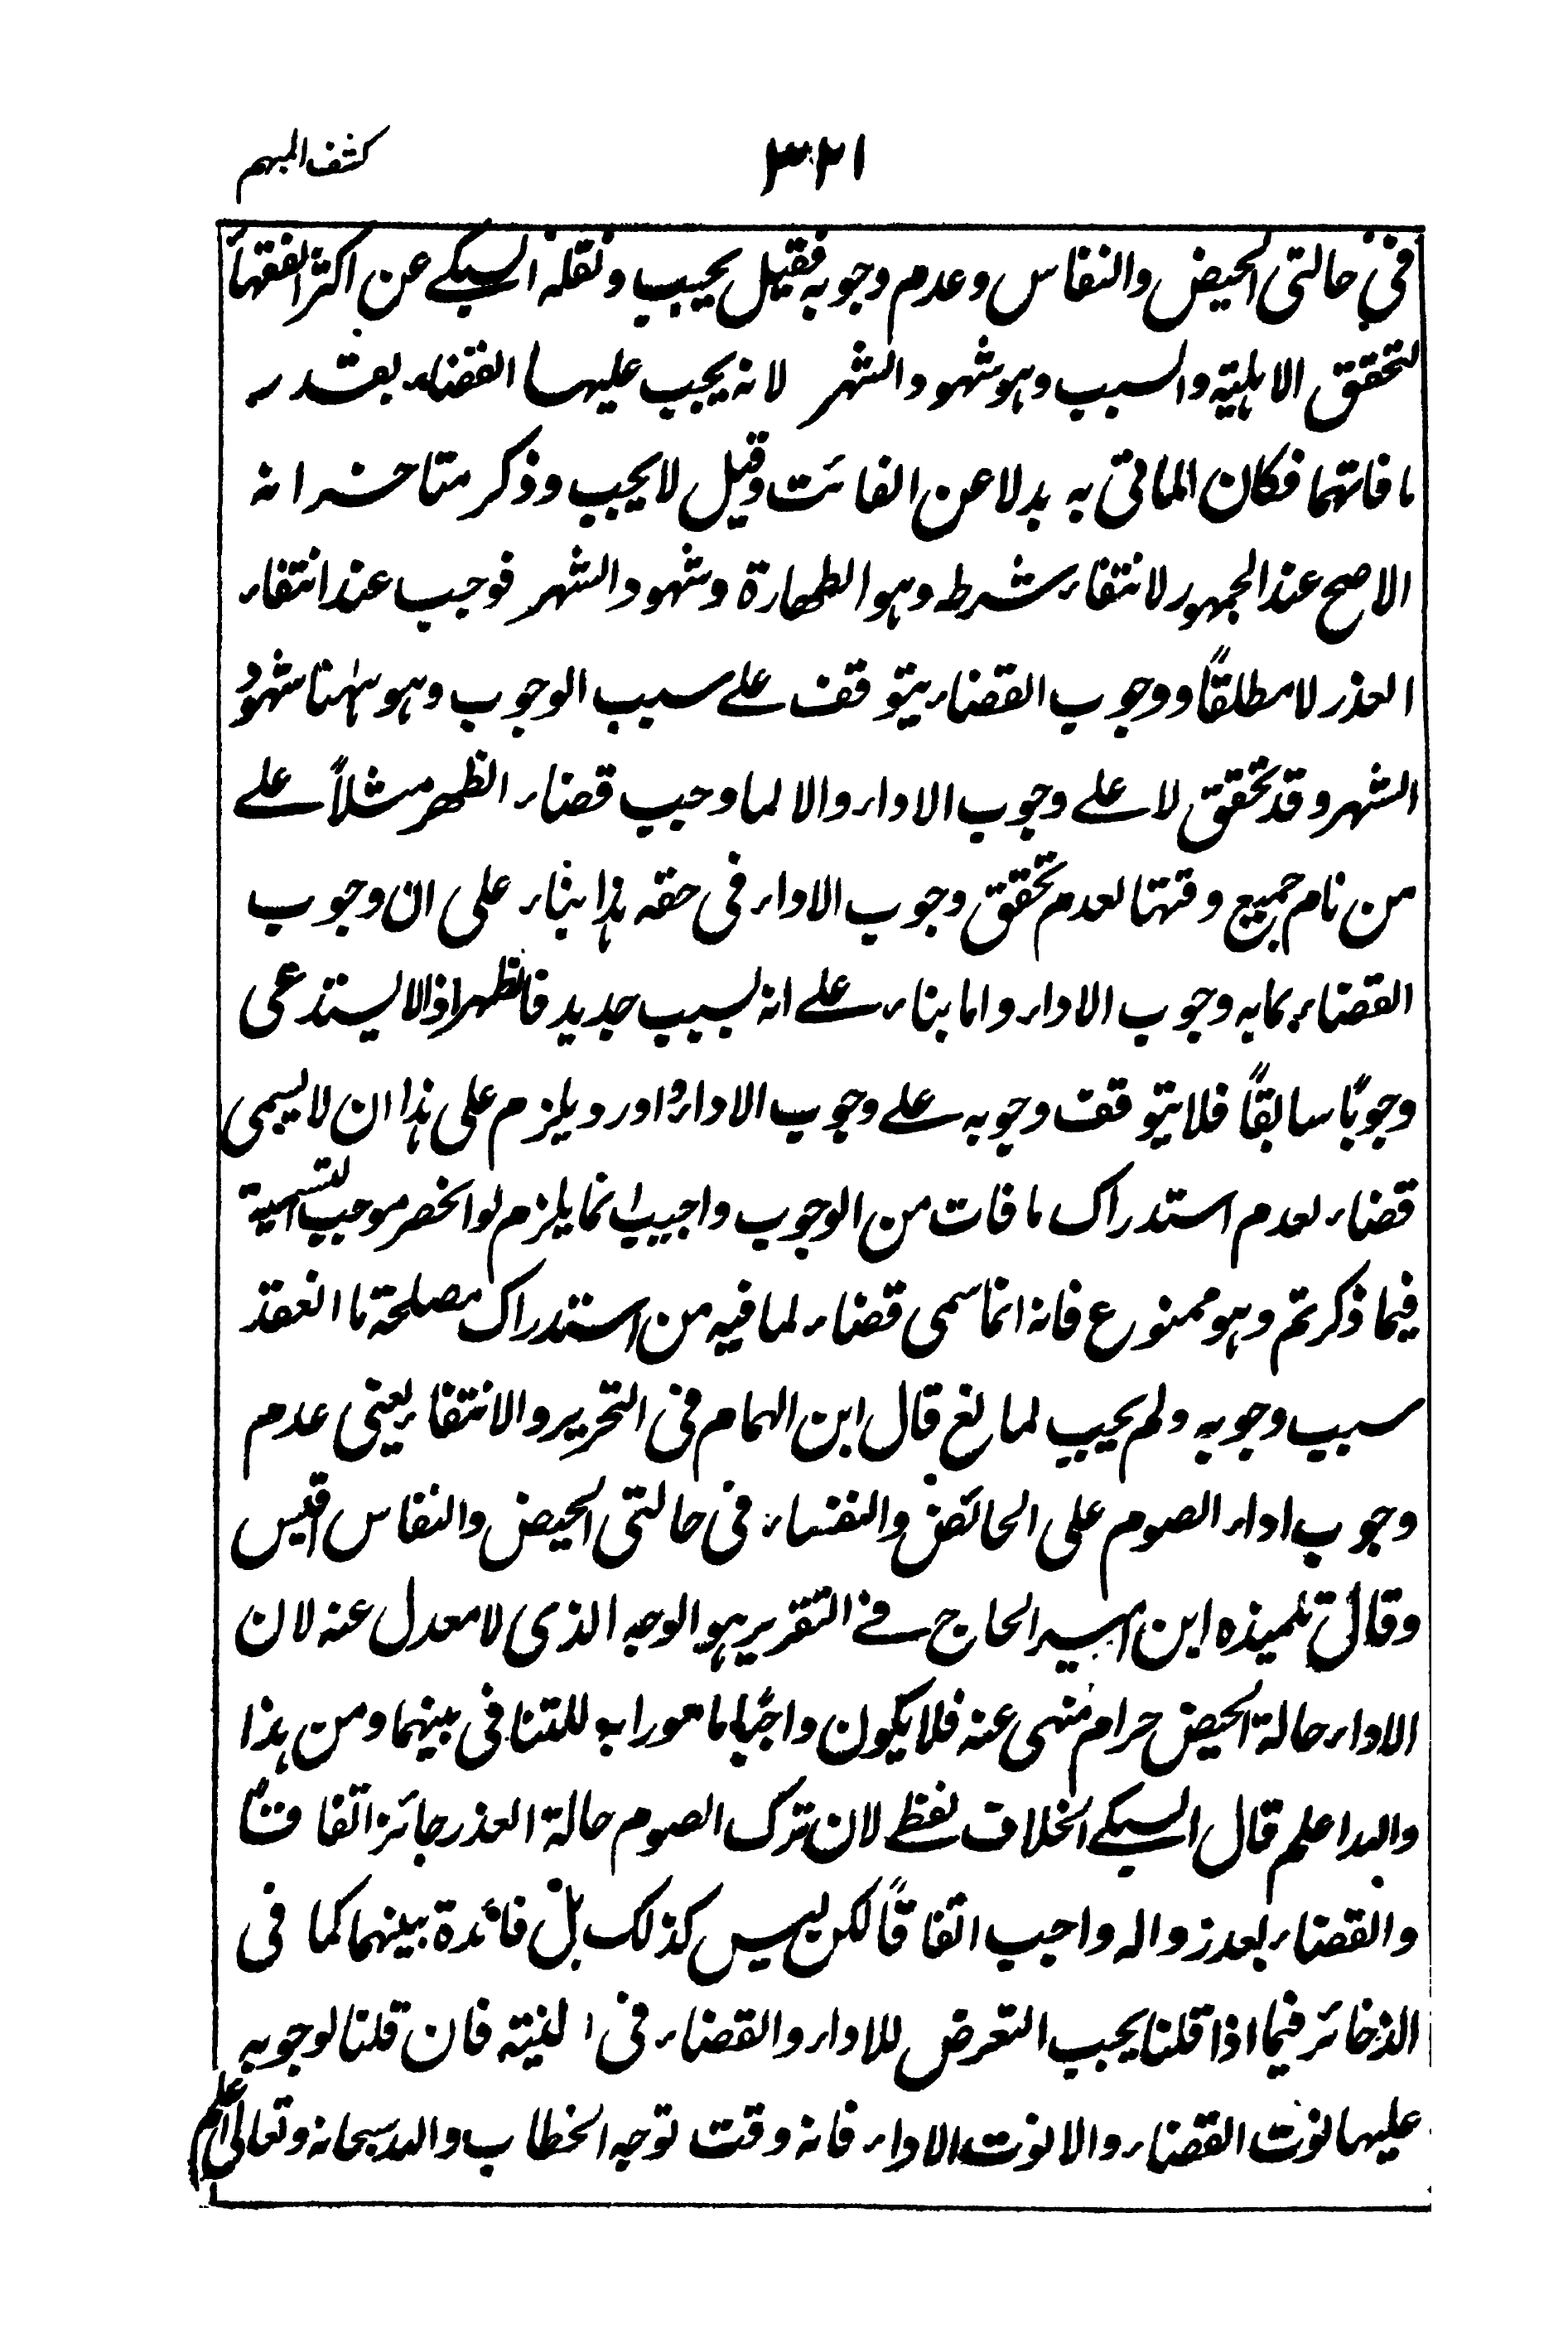 كشف المبهم
٣٢١
في حالتى الحيض والنفاس وعدم وجوبه فقيل يجب ونقله السبكے عن اكثر الفقهاء
لتحقق الاهلية والسبب وهو شهود الشهر لانه يجب عليهما القضاء بقدر
ما فاتهما فكان الماتى به بدلا عن الفائت وقيل لا يجب وذكر متاخر انه
الاصح عند الجمهور لانتفاء شرطه وهو الطهارة وشهود الشهر فوجب عند انتفاء
العذر لا مطلقاً ووجوب القضاء يتوقف علے سبب الوجوب وهو ههنا شهود
الشهر وقد تحقق لا علے وجوب الاداء والا لما وجب قضاء الظهر مثلاً علے
من نام جميع وقتها لعدم تحقق وجوب الاداء فى حقه هذا بناء على ان وجوب
القضاء بما به وجوب الاداء واما بناء علے انه بسبب جديد فاظهر اذ لا يستدعى
وجوباً سابقاً فلا يتوقف وجوبه علے وجوب الاداء واورد ويلزم على هذا ان لا يسمى
قضاء لعدم استدراك ما فات من الوجوب واجيب انما يلزم لو انحصر موجب التسمية
فيما ذكرتم وهو ممنوع فانه انما سمى قضاء لما فيه من استدراك مصلحة ما انعقد
سبب وجوبه ولم يجب لمانع قال ابن الهمام فى التحرير والانتفاء يعنى عدم
وجوب اداء الصوم على الحائض والنفساء فى حالتى الحيض والنفاس اقيس
وقال تلميذه ابن امير الحاج فے التقرير هو الوجه الذى لا معدل عنه لان
الاداء حالة الحيض حرام منهى عنه فلا يكون واجباً مامورا به للتنافى بينهما ومن هذا
والله اعلم قال السبكے الخلاف لفظے لان ترك الصوم حالة العذر جائز اتفاقاً
والقضاء بعد زواله واجب اتفاقاً لكن ليس كذلك بل فائدة بينهما كما فى
الذخائر فيما اذا قلنا يجب التعرض للاداء والقضاء فى النية فان قلنا لوجوبه
عليها نوت القضاء والا نوت الاداء فانه وقت توجه الخطاب والله سبحانه وتعالى اعلم